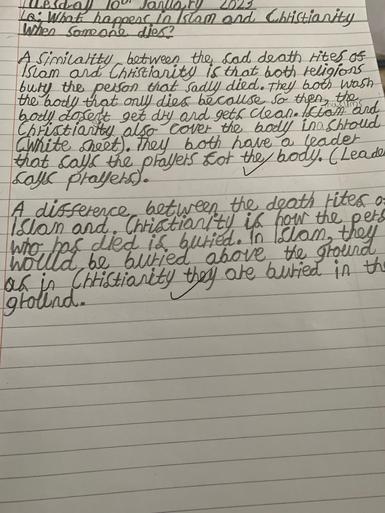 Tuesday 10th January 2023
Lo: What happens in Islam and Christianity
when someone dies?
A similarity between the sad death rites of
Islam and Christianity is that both religions
bury the person that sadly died. They both wash
the body that only dies because so then, the
body dosent get dry and gets clean. Islam and
Christianity also cover the body in a shroud
(white sheet). They both have a leader
that says the prayers for the body. (Leader
says prayers).
A difference between the death rites of
Islam and Christianity is how the pers
who has died is buried. In Islam, they
would be buried above the ground
as in Christianity they are buried in the
ground.